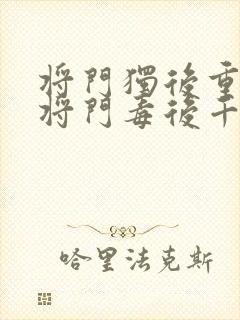 将門獨後重
将門毒後
哈里法克斯